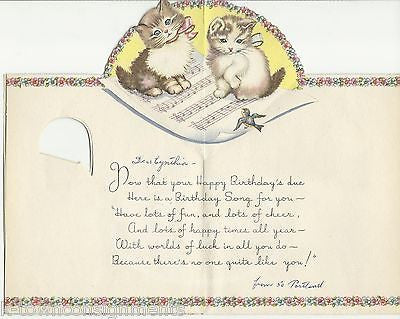 Dear Cynthia -
Now that your Happy Birthday's due
Here is a Birthday Song for you -
"Have lots of fun, and lots of cheer,
And lots of happy times all year -
With worlds of luck in all you do -
Because there's no one quite like you!"
from